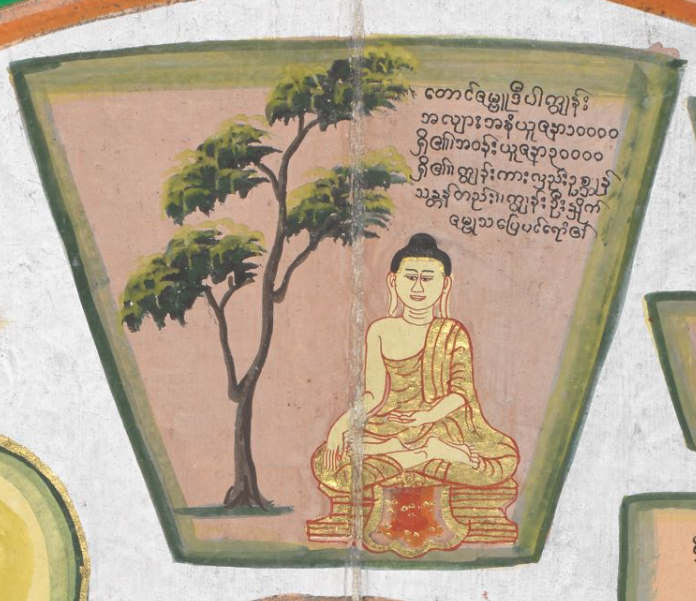 တောင်ဇမ္ဗူဒီပါကျွန်း
အလျားအနံယူဇနာ၁၀၀၀၀
ရှိ၏။အဝန်းယူဇနာ၃၀၀၀၀
ရှိ၏။ကျွန်းကားလှည်းဥစ္သျှန်
သဏ္ဌာန်တည်း။ကျွန်းဦး၌
ဇမ္ဗုသပြေပင်ရောံ၏